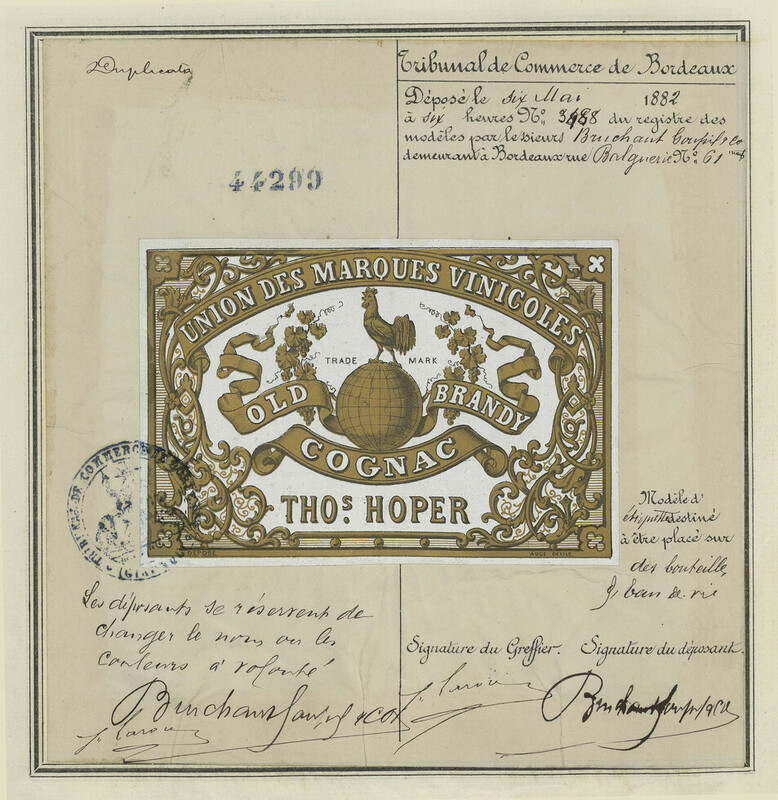 Duplicata
Tribunal de Commerce de Bordeaux
Déposé le six Mai 1882
à six heures No. 3488 du registre des
modèles par les sieurs Bruchaut Goupil & Co
demeurant à Bordeaux rue Balguerie No. 61
44299
UNION DES MARQUES VINICOLES
TRADE MARK
OLD BRANDY
COGNAC
THOS. HOPER
DÉPOSÉ
TRIBUNAL DE COMMERCE
Modèle d'
étiquette destiné
à être placé sur
des bouteilles
d'eau de vie
Les déposants se réservent de
changer le nom ou les
couleurs à volonté
Signature du Greffier. Signature du déposant.
Bruchaut Goupil & Co
Bruchaut Goupil & Co